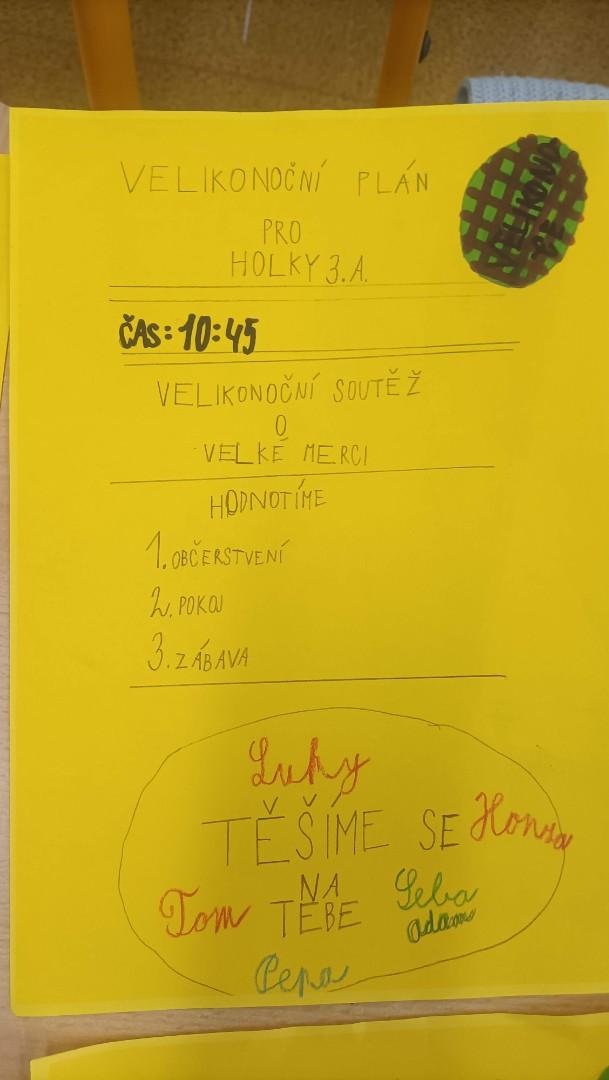 VELIKONOČNÍ PLÁN
PRO
HOLKY 3.A.
VELIKONO
CE
ČAS: 10:45
VELIKONOČNÍ SOUTĚŽ
O
VELKÉ MERCI
HODNOTÍME
1. OBČERSTVENÍ
2. POKOJ
3. ZÁBAVA
Luky
TĚŠÍME SE Honza
NA
Tom TEBE Seba
Adam
Pepa